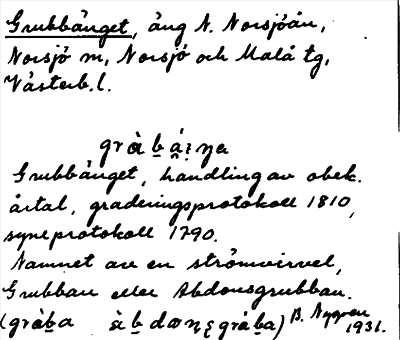 Grubbänget, äng N. Norsjöån,
Norsjö sn, Norsjö och Malå tg,
Västerb. l.
Grubbänget, handling av obek.
årtal, graderingsprotokoll 1810,
syneprotokoll 1790.
Namnet av en strömvirvel,
Grubban eller Abdonsgrubban.
B. Nygren
1931.